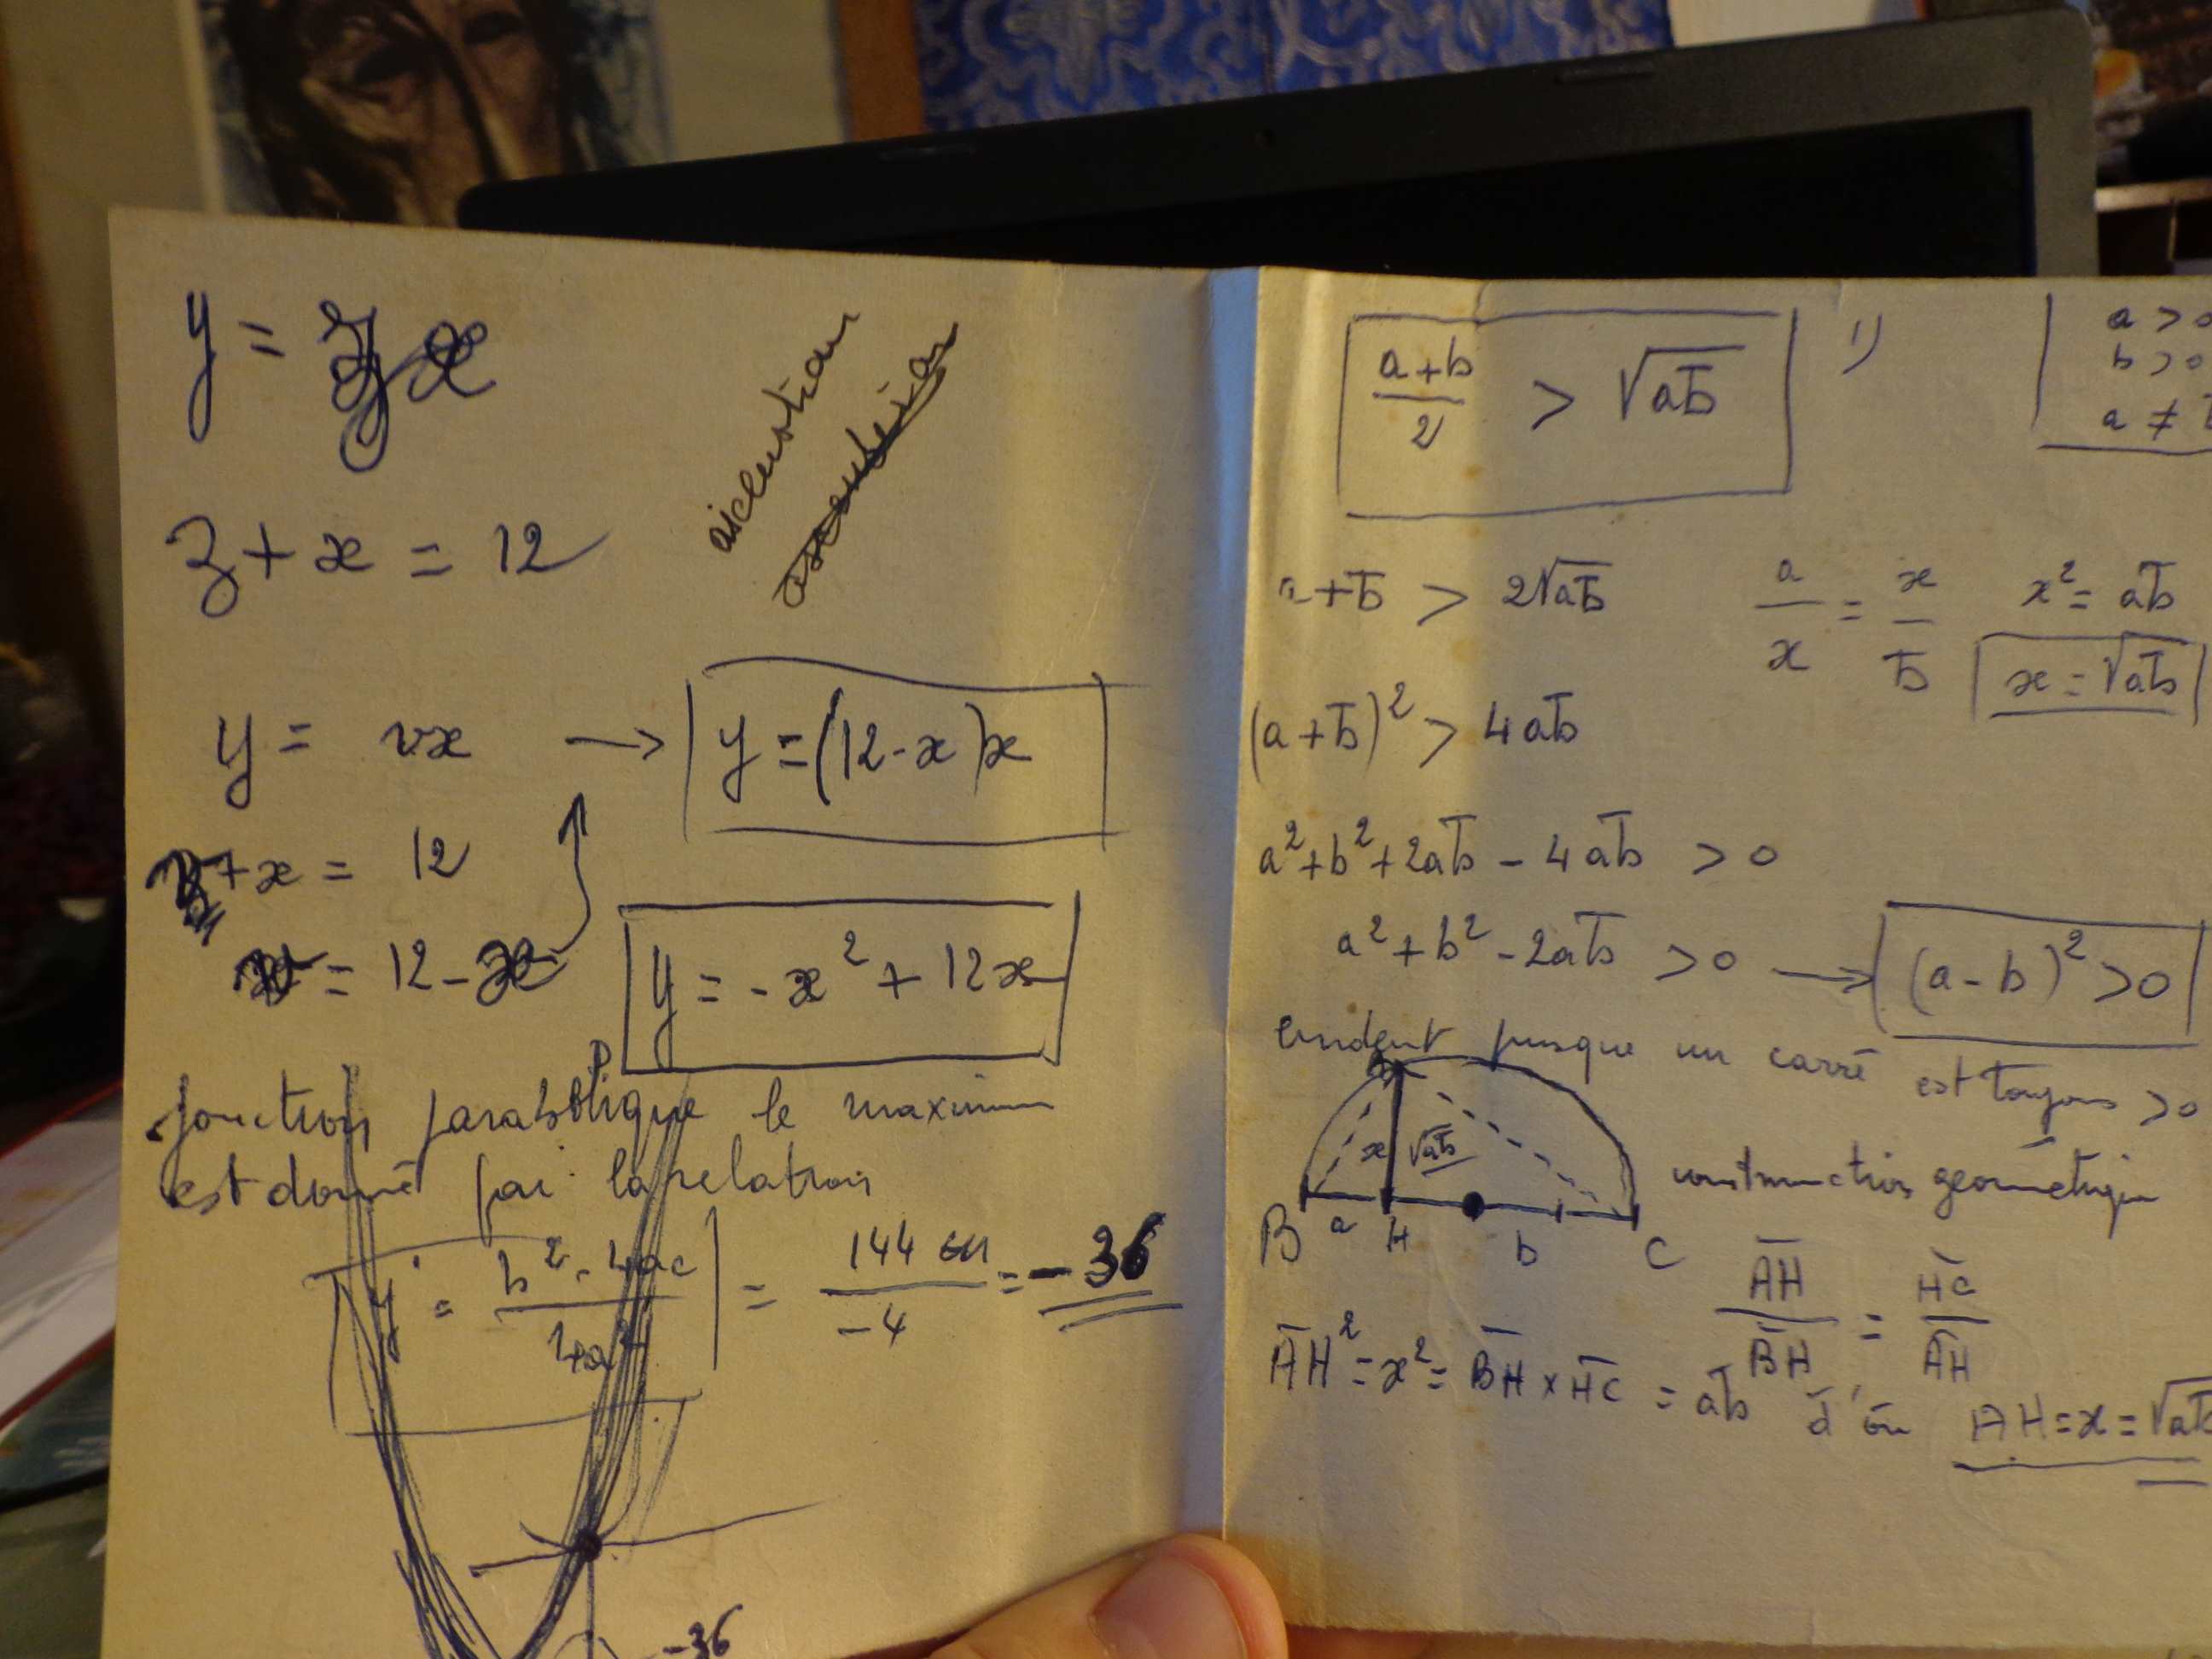 y = zx
z + x = 12
y = vx → y = (12 - x)x
+ x = 12
= 12 - x
y = - x² + 12x
fonction parabolique le maximum
est donné par la relation
y' = b² - 4ac / 4a = 144 / -4 = -36
-36
a+b / 2 > √ab 1)
a > 0
b > 0
a ≠ b
a + b > 2√ab a/x = x/b x² = ab
x = √ab
(a + b)² > 4ab
a² + b² + 2ab - 4ab > 0
a² + b² - 2ab > 0 → (a - b)² > 0
evident puisque un carré est toujours > 0
x √ab
B a H b C
construction géométrique
AH / BH = HC / AH
AH² = x² = BH x HC = ab d'où AH = x = √ab